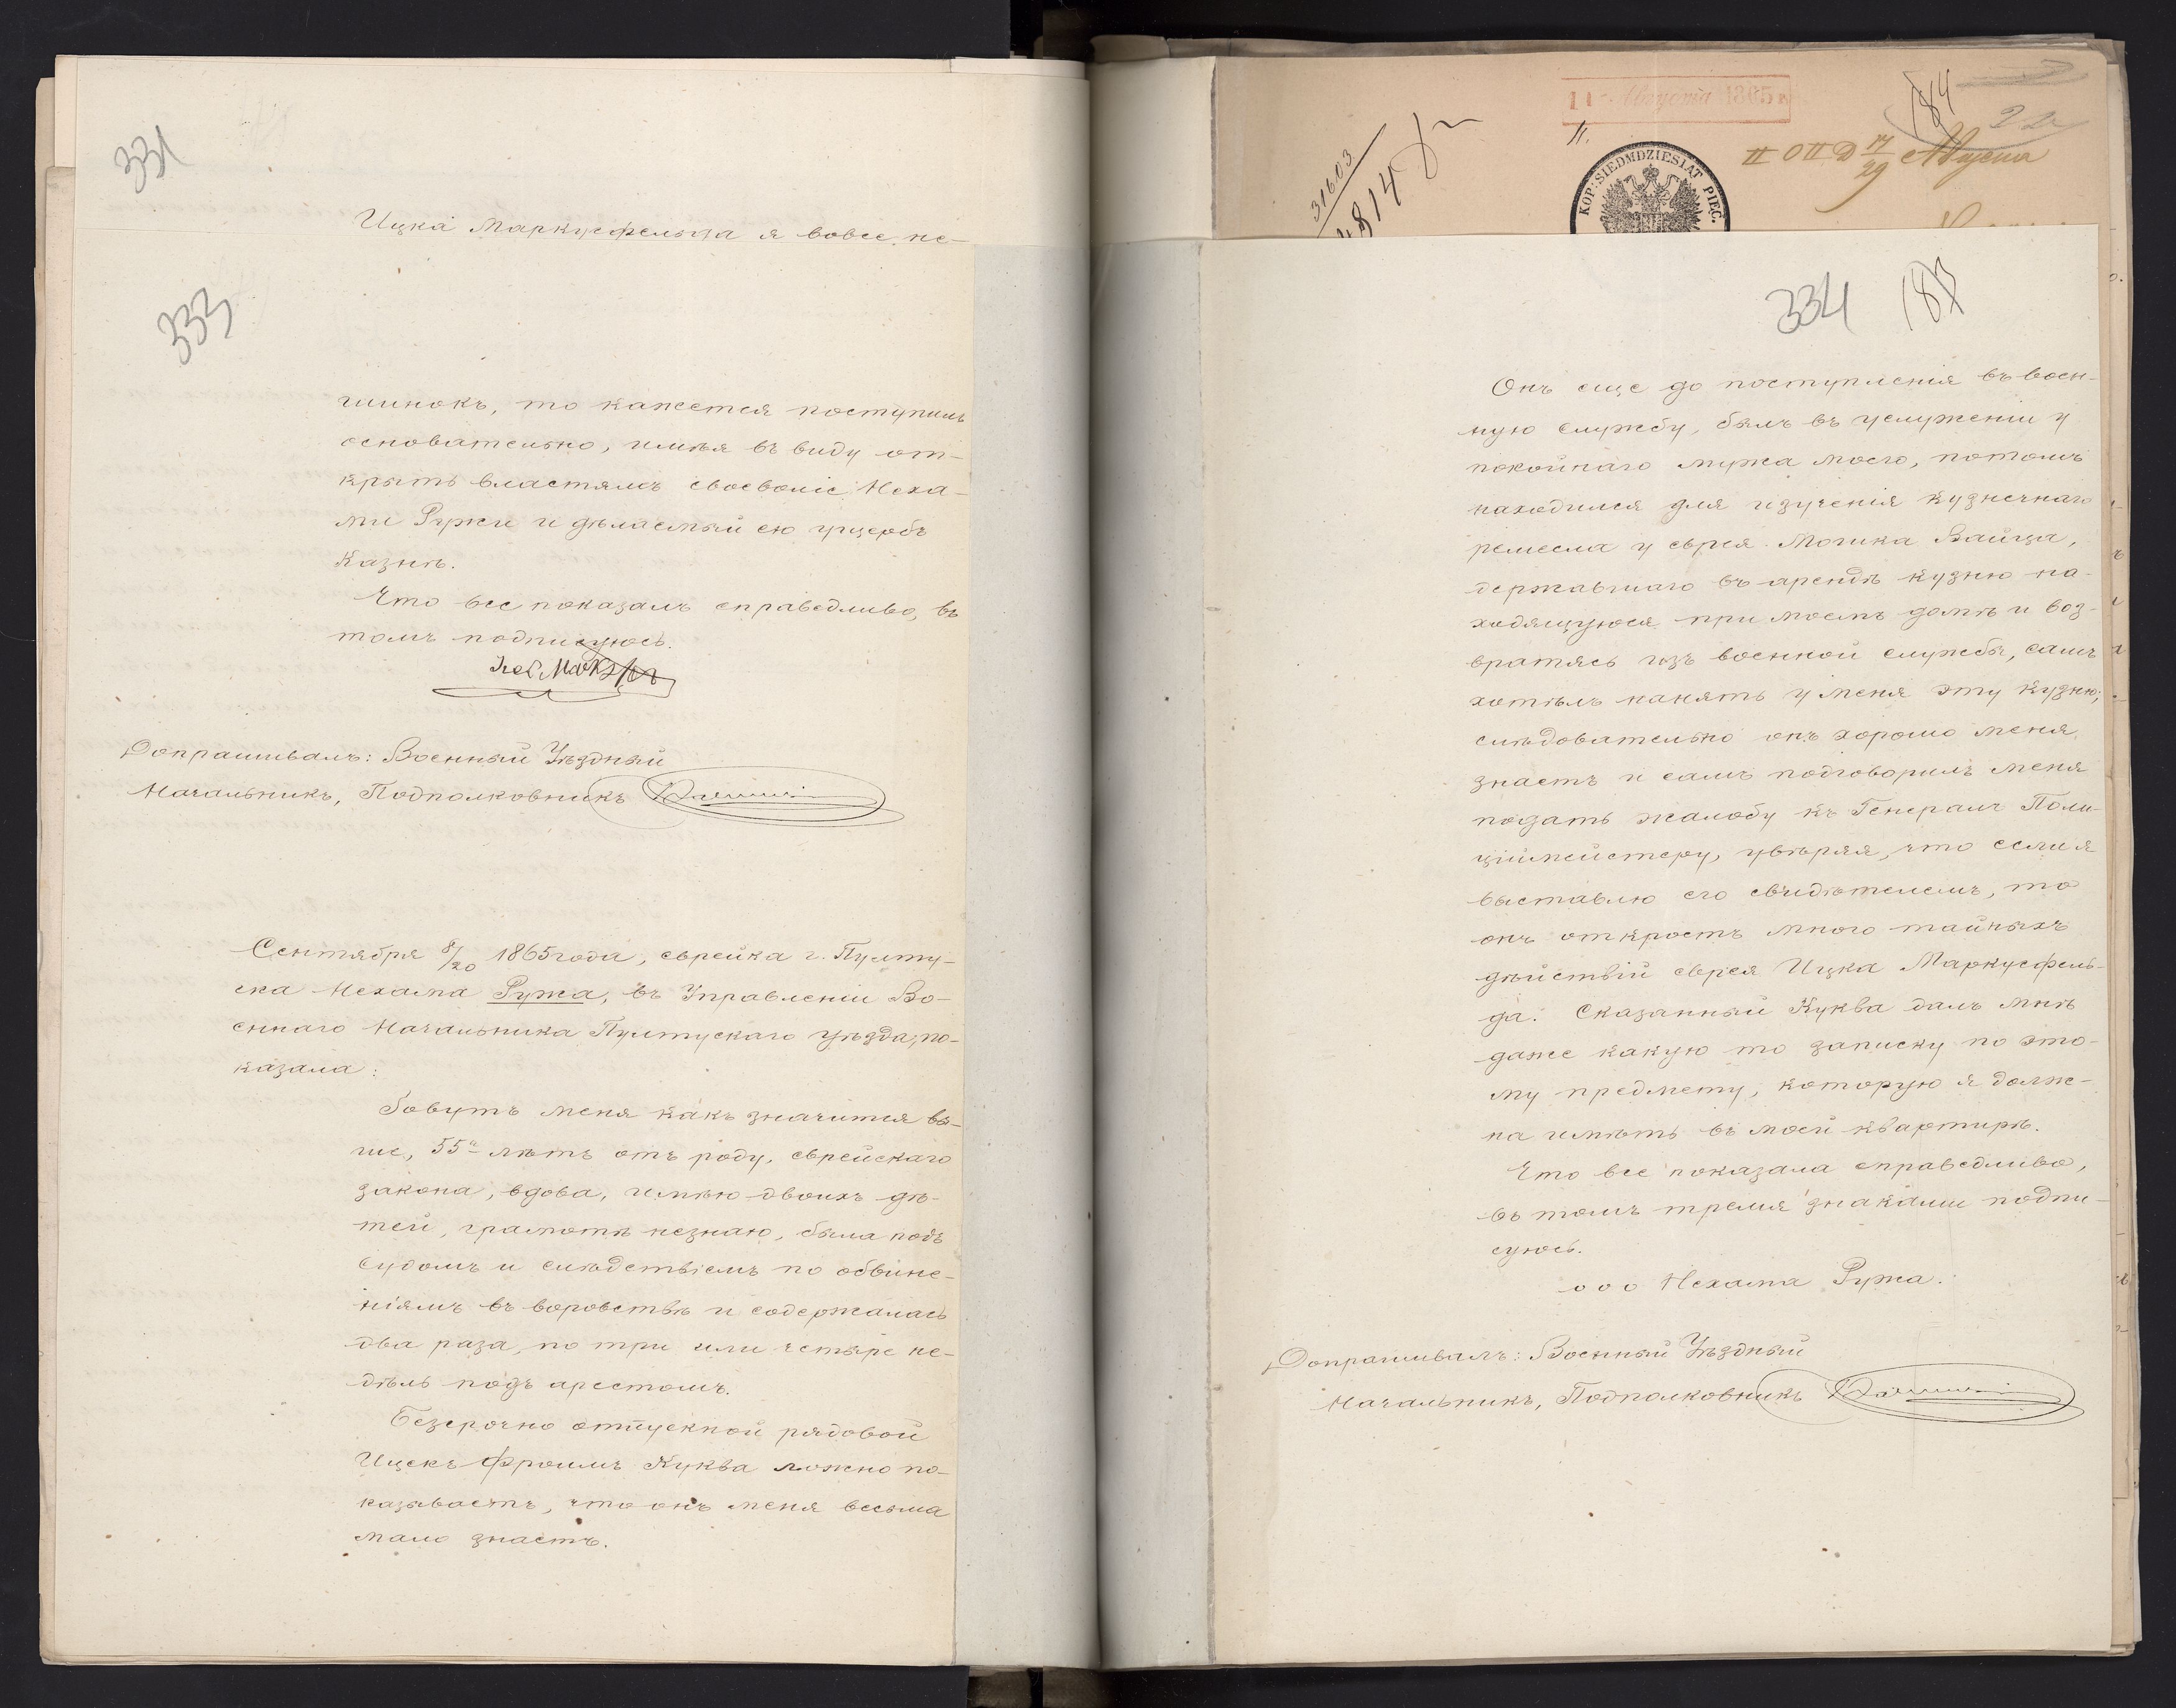 331
Ицка Маркусфельда я вовсе не-
333
гшнокъ, то кажется поступилъ
основательно, имѣя въ виду от-
крыть властямъ своеволіе Неха-
мы Ружи и дѣлаемый ею ущербъ
Казнѣ.
Что все показалъ справедливо, въ
томъ подписуюсь.
Допрашивалъ: Военный Уѣздный
Начальникъ, Подполковникъ
Сентября 8/20 1865 года, еврейка г. Пулту-
ска Нехама Ружа, въ Управленіи Во-
еннаго Начальника Пултускаго уѣзда, по-
казала:
Зовутъ меня какъ значится вы-
ше, 55ть лѣтъ отъ роду, еврейскаго
закона, вдова, имѣю двоихъ дѣ-
тей, грамотѣ незнаю, была подъ
судомъ и слѣдствіемъ по обвине-
ніямъ въ воровствѣ и содержалась
два раза, по три или четыре не-
дѣль подъ арестомъ.
Безсрочно отпускной рядовой
Ицекъ Фроимъ Куква ложно по-
казываетъ, что онъ меня весьма
мало знаетъ.
11 Августа 1865 г.
184
22
II О II D 17/29 Августа
31603
4814
11.
KOP: SIEDMDZIESIĄT PIĘĆ.
334 183
Онъ еще до поступленія въ воен-
ную службу, былъ въ услуженіи у
покойнаго мужа моего, потомъ
находился для изученія кузнечнаго
ремесла у еврея Мошка Вайца,
державшаго въ арендѣ кузню на-
ходящуюся при моемъ домѣ и воз-
вратясь изъ военной службы, самъ
хотѣлъ нанять у меня эту кузню;
слѣдовательно онъ хорошо меня
знаетъ и самъ подговорилъ меня
подать жалобу къ Генералъ Поли-
ціймейстеру, увѣряя, что если я
выставлю его свидѣтелемъ, то
онъ откроетъ много тайныхъ
дѣйствій еврея Ицка Маркусфель-
да. Сказанный Куква далъ мнѣ
даже какую то записку по это-
му предмету, которую я долж-
на имѣть въ моей квартирѣ.
Что все показала справедливо,
въ томъ тремя знаками подпи-
суюсь.
ооо Нехама Ружа.
Допрашивалъ: Военный Уѣздный
Начальникъ, Подполковникъ